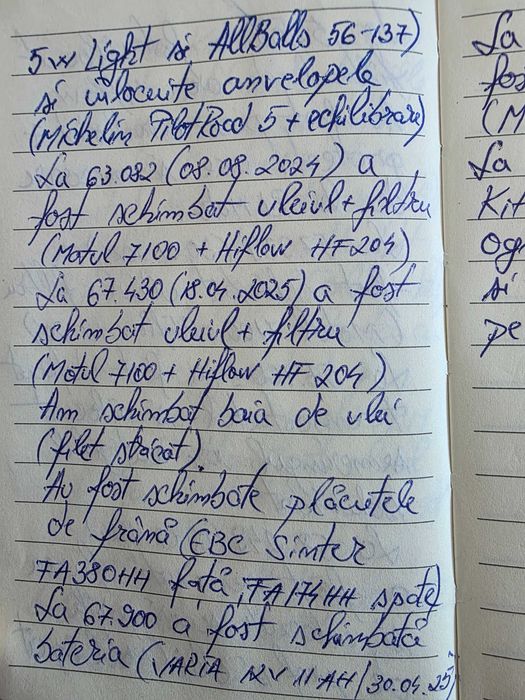 5w Light si AllBalls 56-137)
si inlocuite anvelopele
(Michelin PilotRoad 5 + echilibrare)
La 63.082 (08.08.2024) a
fost schimbat uleiul + filtru
(Motul 7100 + Hiflow HF204)
La 67.430 (18.04.2025) a fost
schimbat uleiul + filtru
(Motul 7100 + Hiflow HF 204)
Am schimbat baia de ulei
(filet stricat).
Au fost schimbate plăcuțele
de frână (EBC Sinter
FA380HH față, FA174HH spate)
La 67.900 a fost schimbată
bateria (VARTA 12V 11AH/30.04.25)
La
fos
(M
La
Kit
si
pe